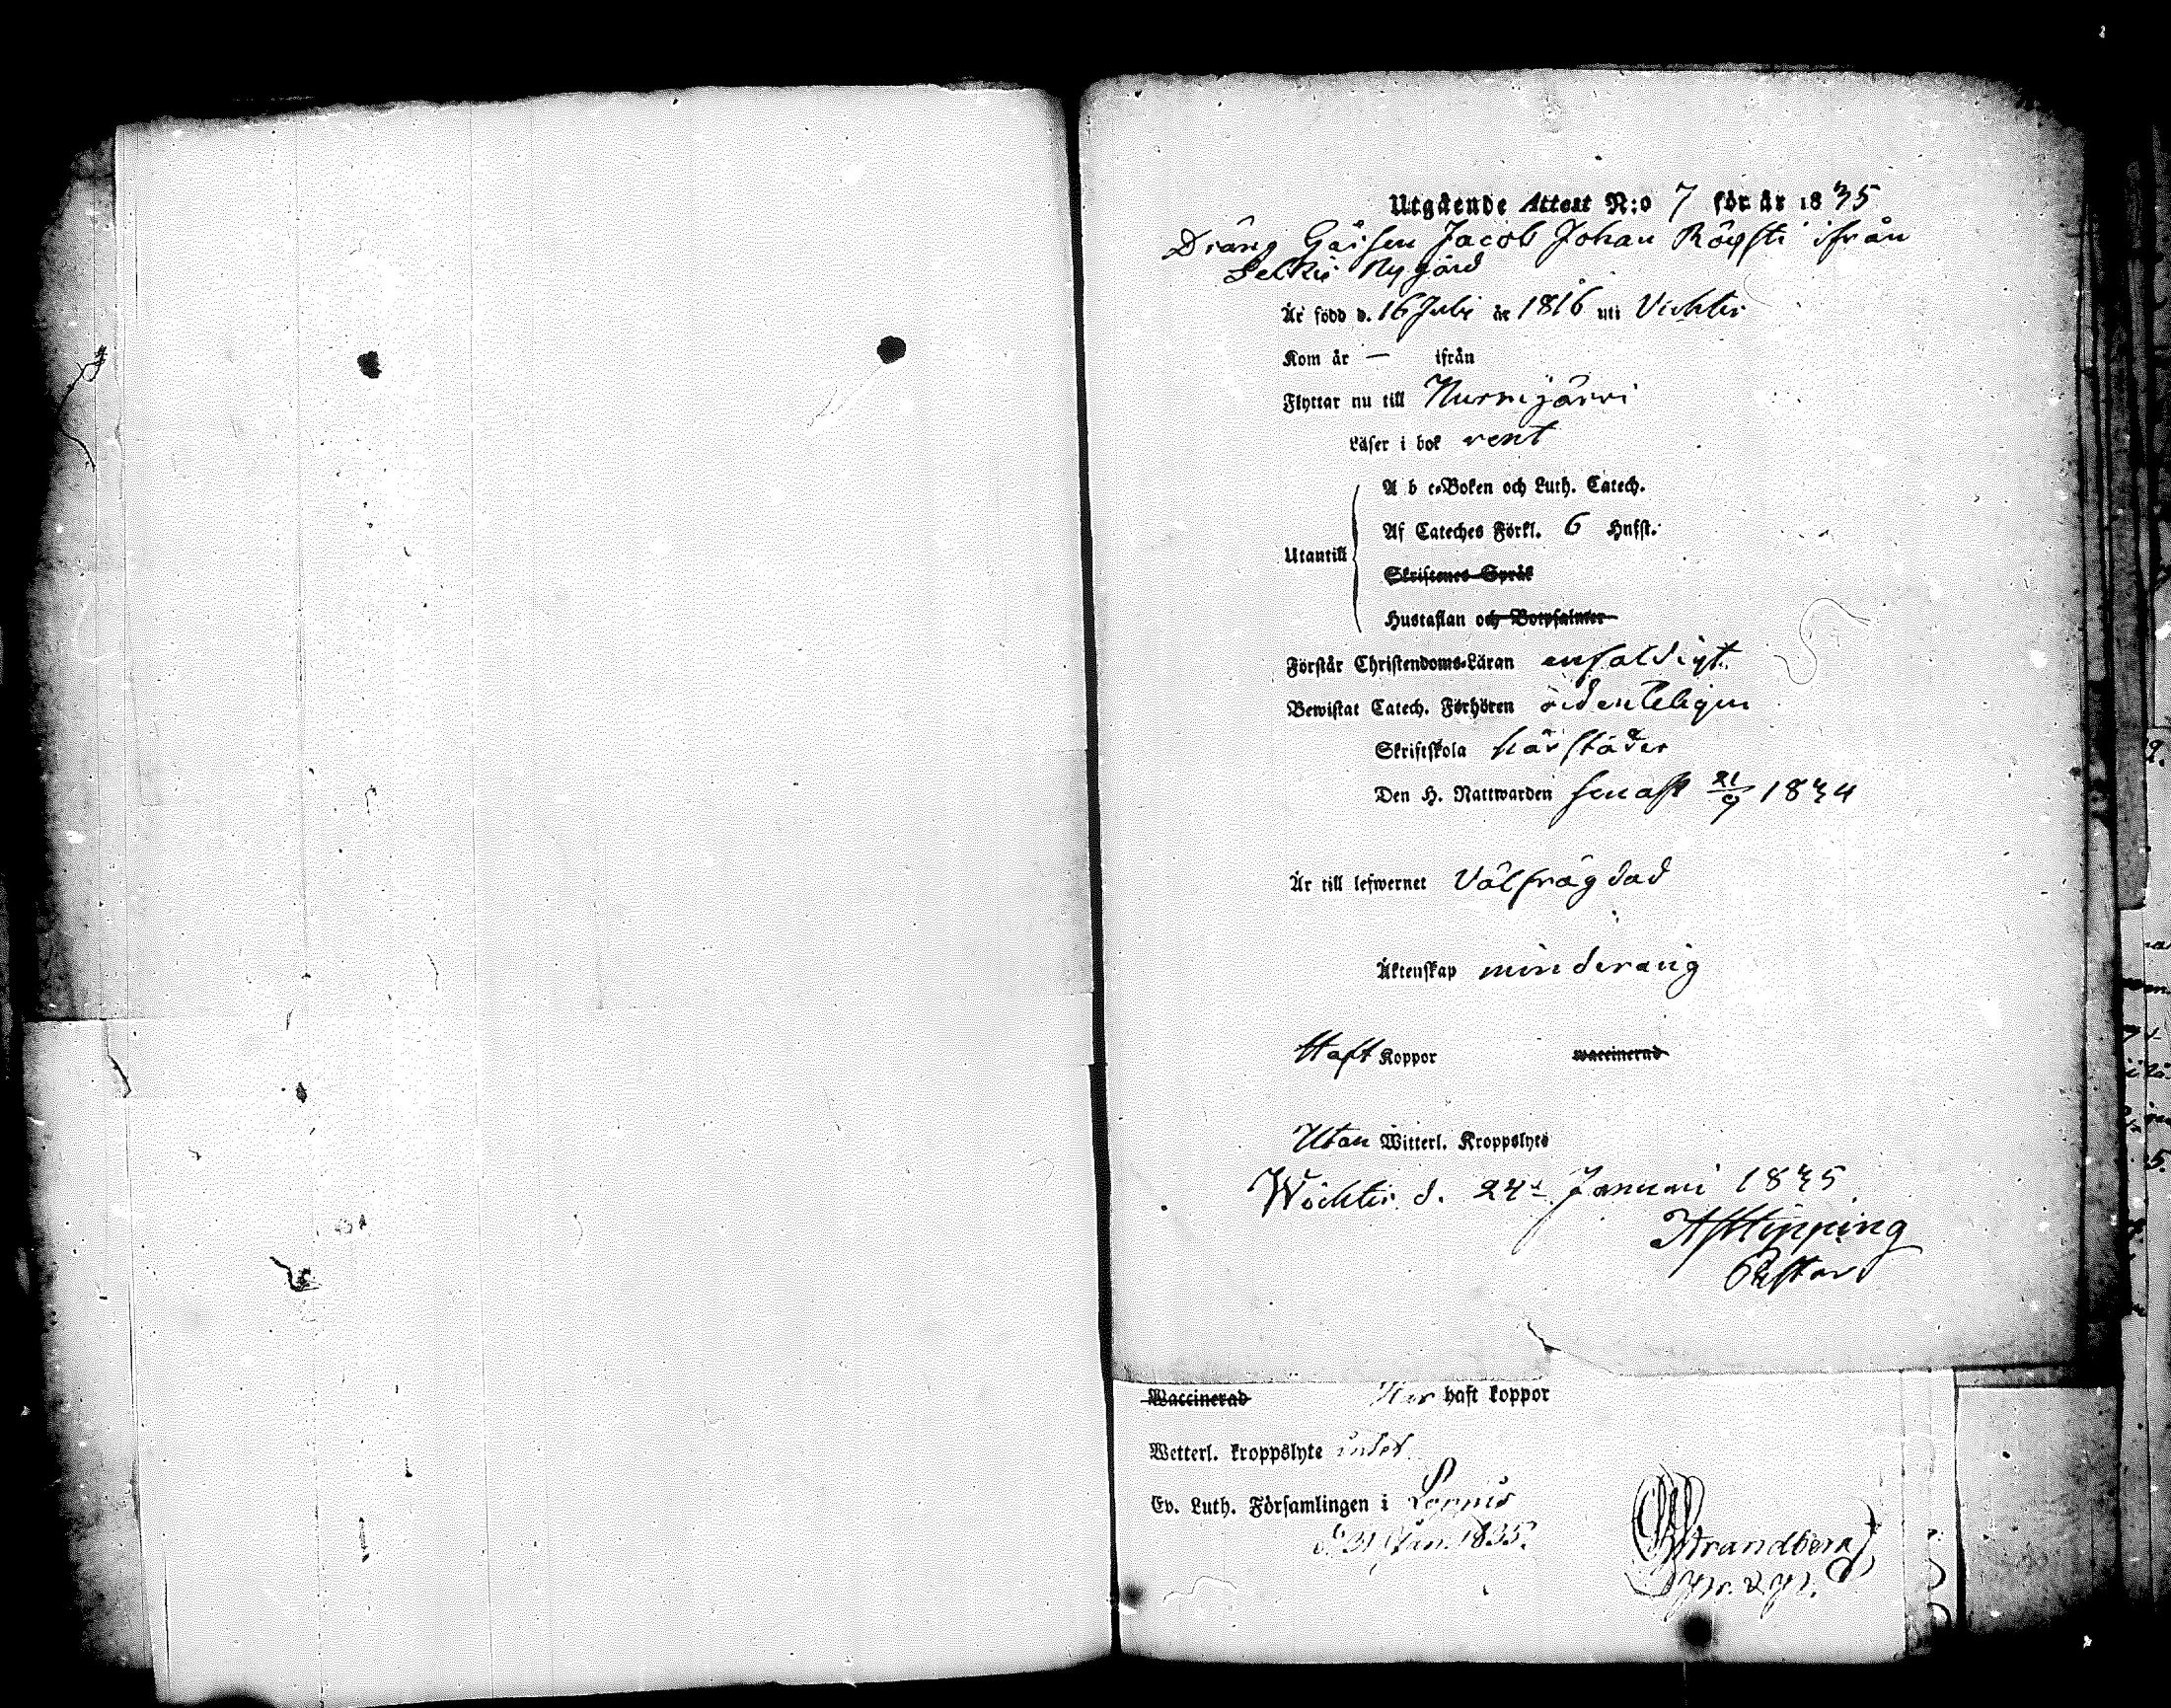 Utgående Attest N:o 7 för år 1835
Dräng Gåssen Jacob Johan ifrån
Nygård
Är född d. 16 Julii år 1816 uti Vichtis
Kom år — ifrån
Flyttar nu till Nurmijärvi
Läser i bok rent
A b c-Boken och Luth. Catech.
Af Cateches Förkl. 6 Hufst.
Utantill
Skriftenes Språk
Hustaflan och Botpsalmer
Förstår Christendoms-Läran enfaldigt
Bewistat Catech. Förhören ordenteligen
Skriftskola härstädes
Den H. Nattwarden senast 21/9 1834
Är till lefwernet Välfrägdad
Äktenskap minderårig
Haft Koppor waccinerad
Utan Witterl. Kroppslyte
Wichtis d. 24de Januari 1835
Hipping
Pastor
Waccinerad Har haft koppor
Wetterl. kroppslyte intet
Ev. Luth. Församlingen i Loppis
d. 31 Jan. 1835.
Strandberg